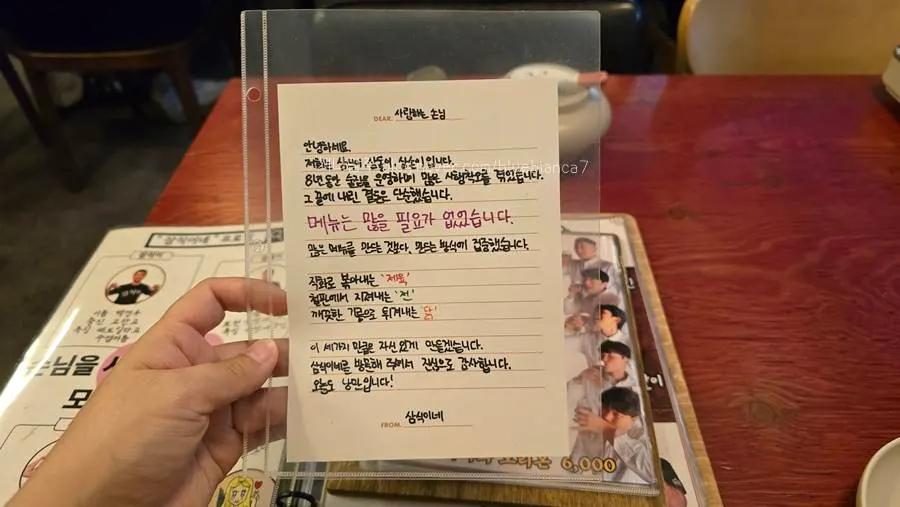 DEAR. 사랑하는 손님
안녕하세요.
저희는 삼식이, 삼돌이, 삼순이 입니다.
8년동안 술집을 운영하며 많은 시행착오를 겪었습니다.
그 끝에 내린 결론은 단순했습니다.
메뉴는 많을 필요가 없었습니다.
많은 메뉴를 만드는 것보다, 만드는 방식에 집중했습니다.
직화로 볶아내는 '제육'
철판에서 지져내는 '전'
깨끗한 기름으로 튀겨내는 '닭'
이 세가지 만큼은 자신있게 만들겠습니다.
삼식이네를 방문해 주셔서 진심으로 감사합니다.
오늘도 낭만입니다!
FROM. 삼식이네
"삼식이네"
손님을
6,000